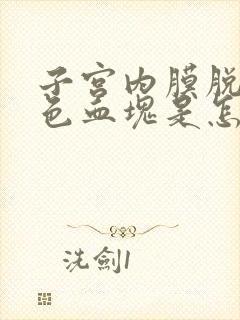 子宫内膜脱
色血块是怎
洗劍1